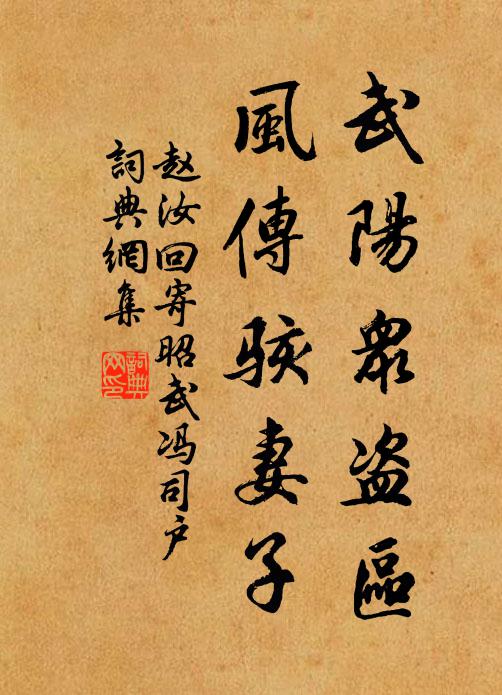 武陽衆盗區
風傳駭妻子
赵汝回寄昭武冯司户
詞典網集
詞典网印